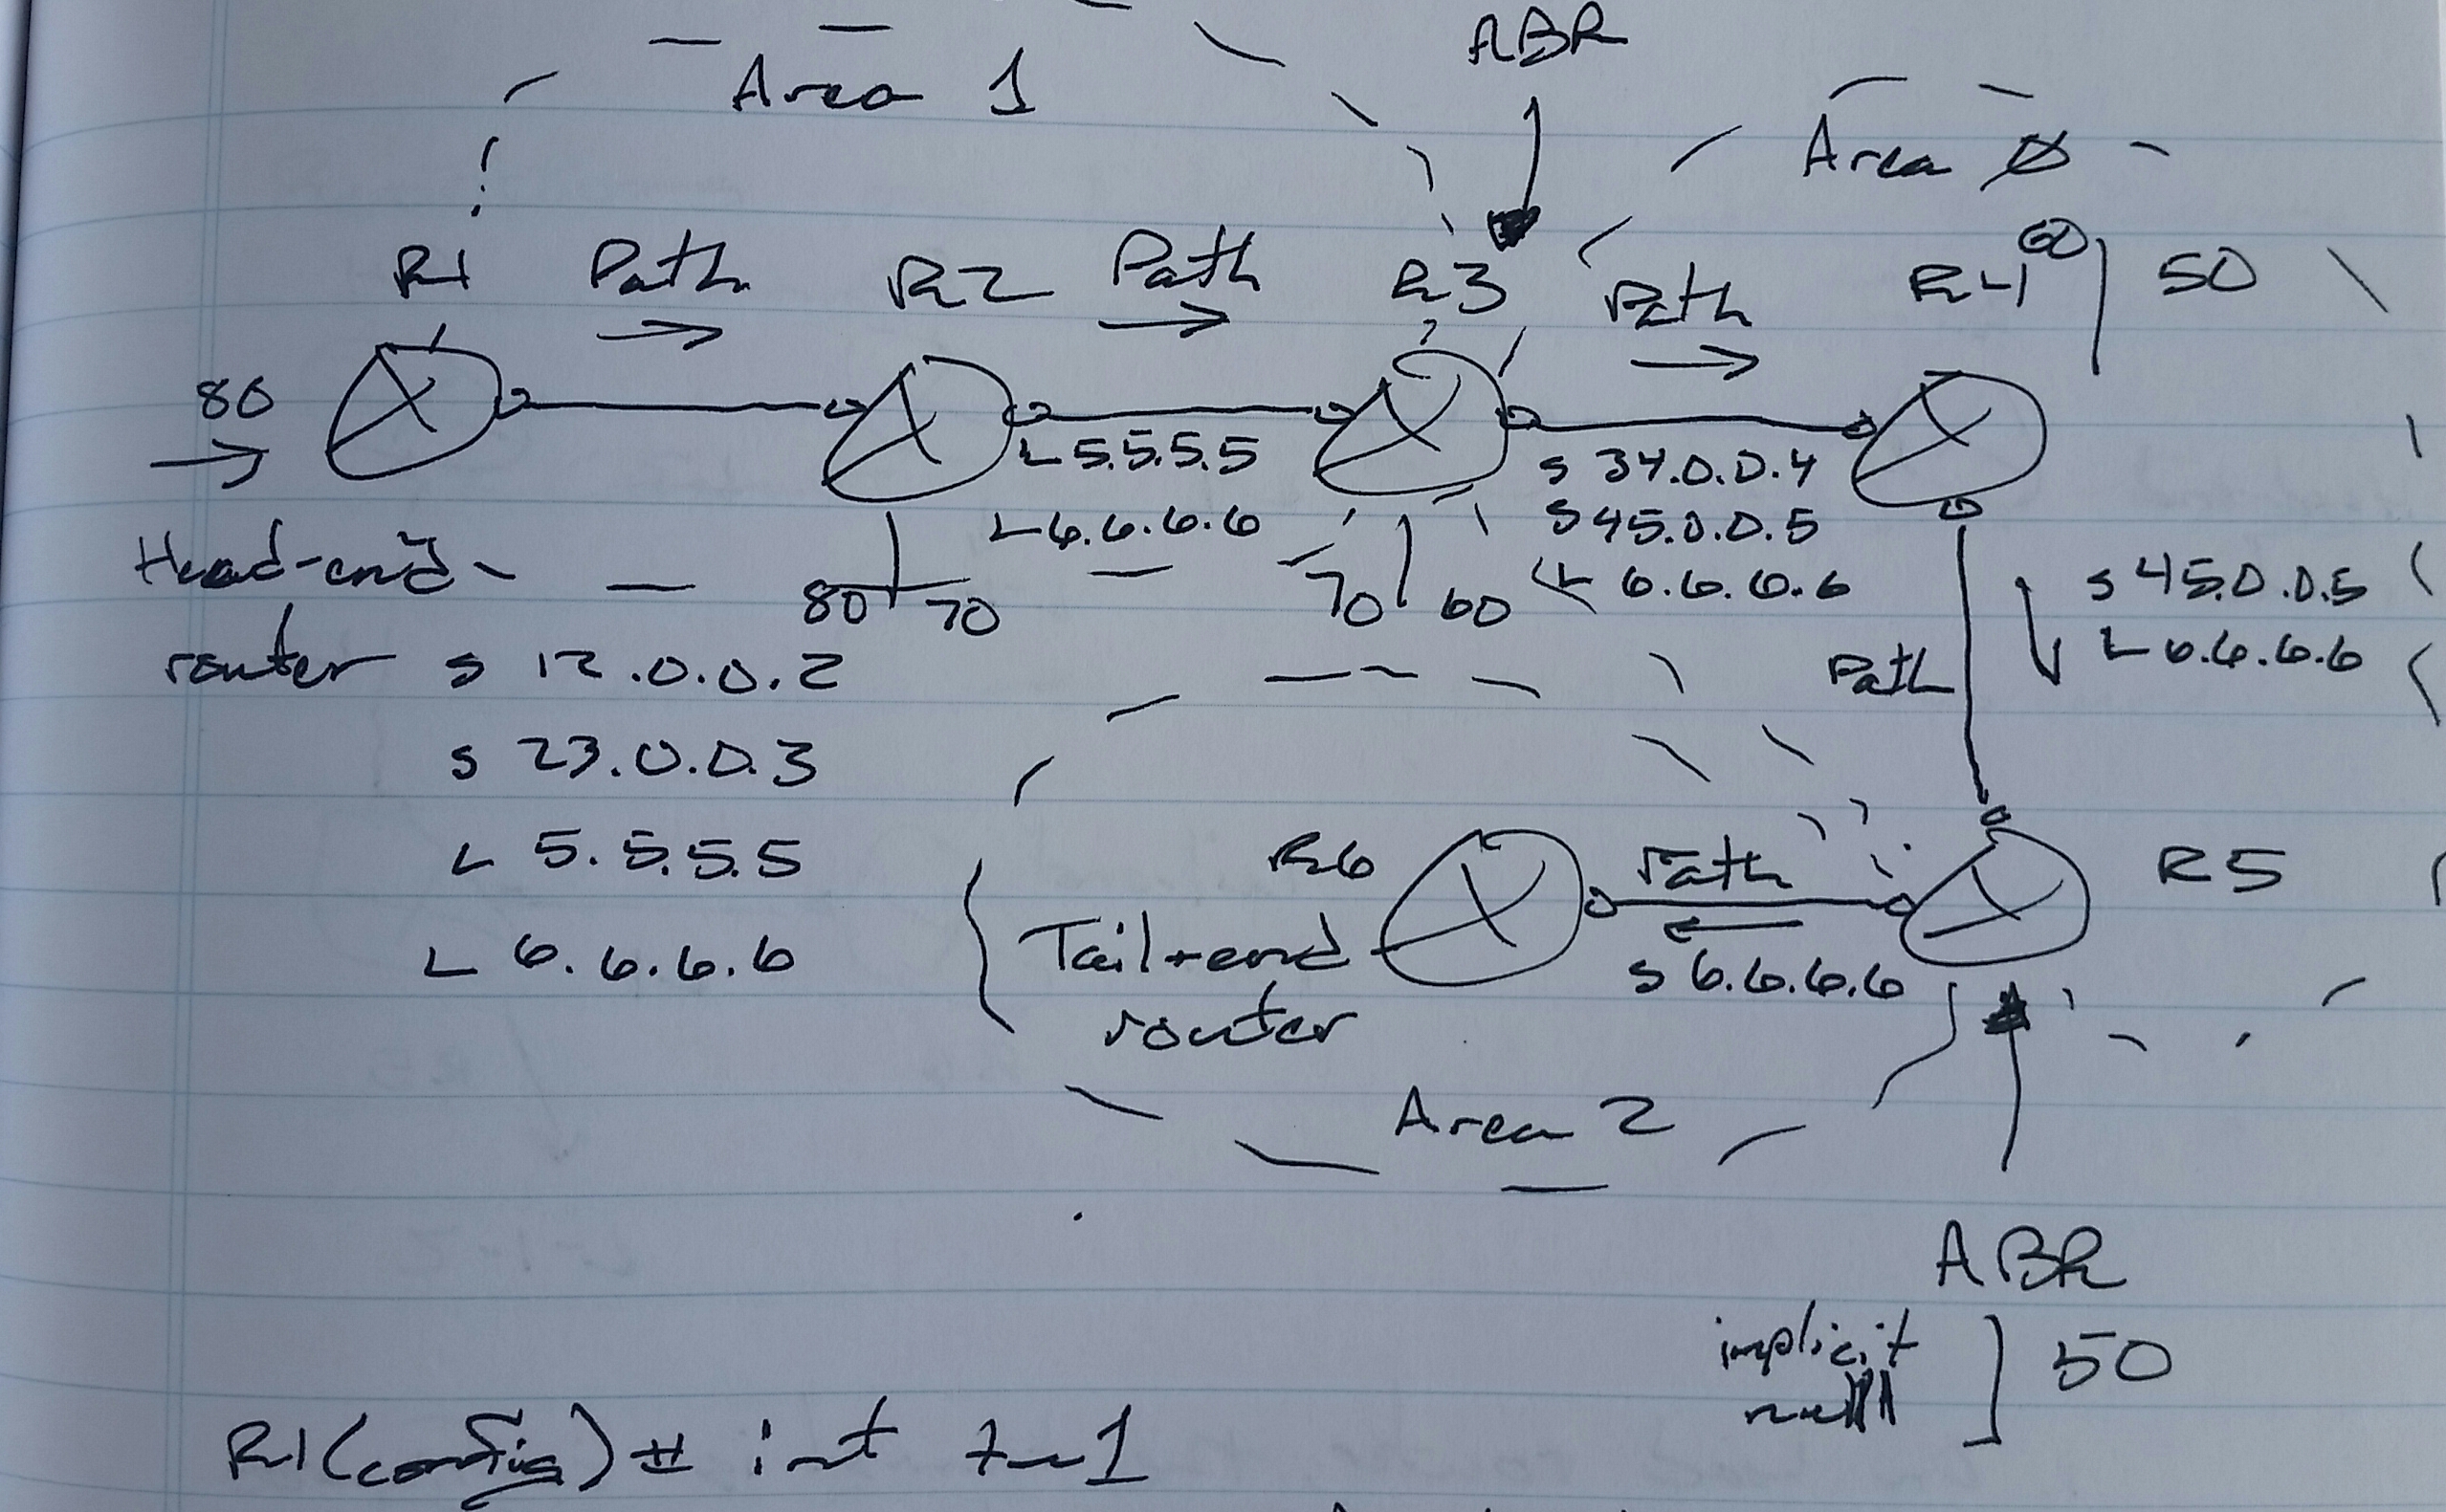 ABR
Area 1
Area 0
R1 Path R2 Path R3 Path R4 60 50
80
L 5.5.5.5
s 34.0.0.4
L 6.6.6.6
s 45.0.0.5
L 6.6.6.6
Head-end
router
80 70
70 60
s 45.0.0.5
L 6.6.6.6
Path
s 12.0.0.2
s 23.0.0.3
L 5.5.5.5
L 6.6.6.6
R6 Path R5
Tail-end
router
s 6.6.6.6
Area 2
ABR
implicit
null
50
R1(config)# int tu1